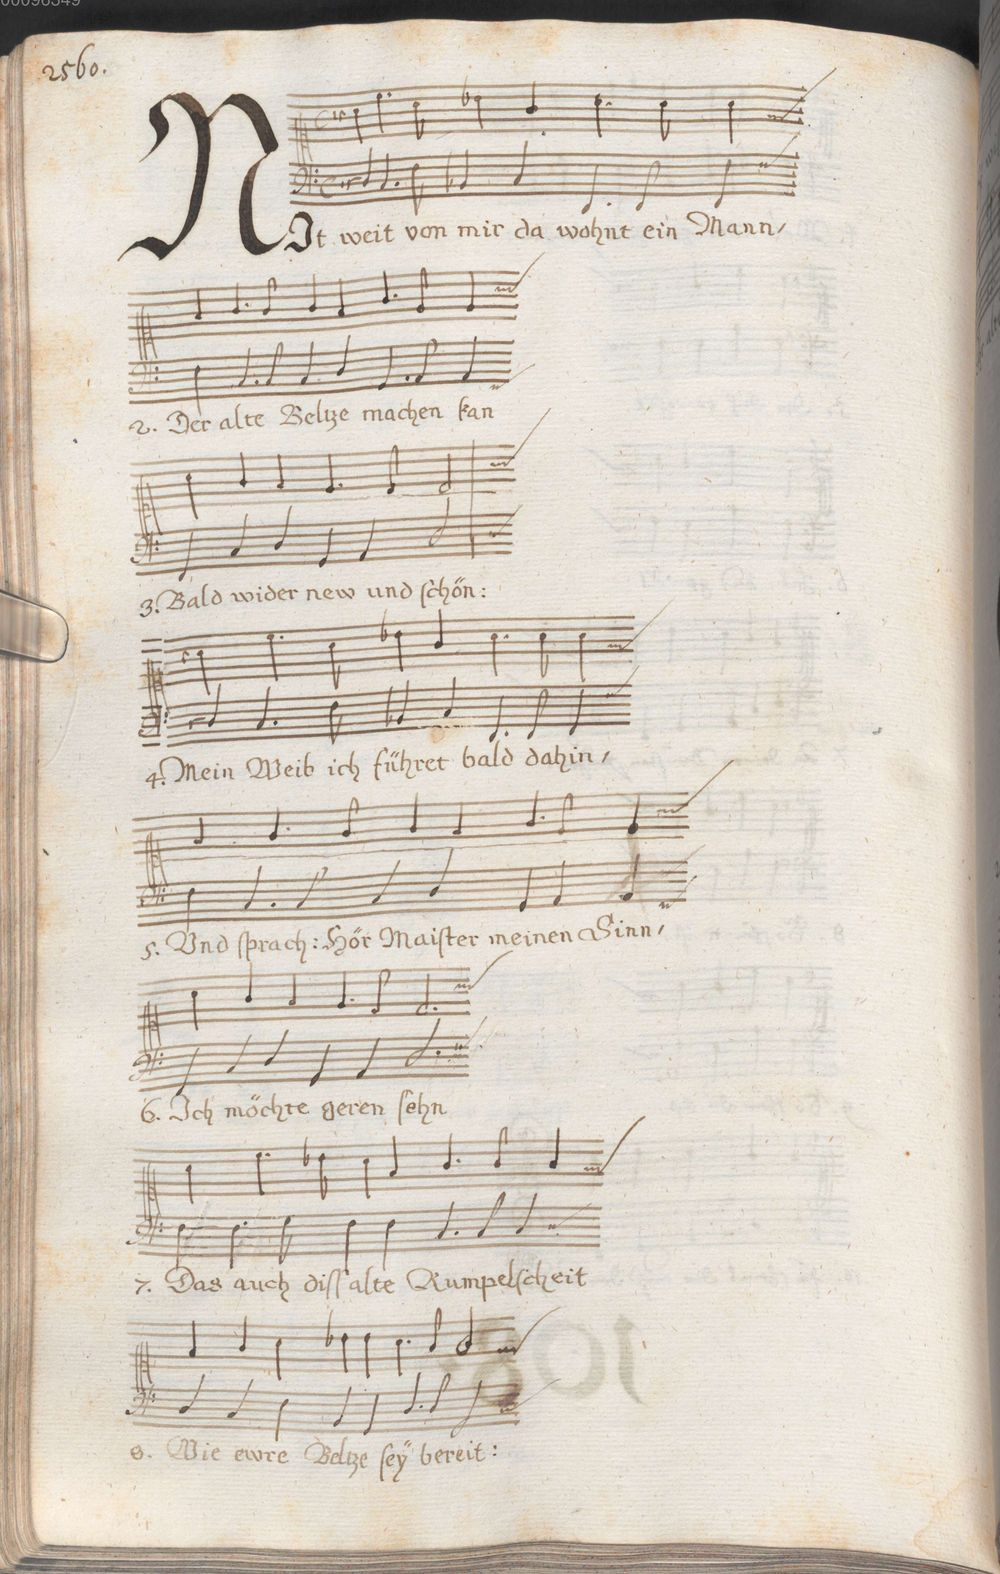 00098349
2560.
NIt weit von mir da wohnt ein Mann/
2. Der alte Beltze machen kan
3. Bald wider new und schön:
4. Mein Weib ich führet bald dahin/
5. Vnd sprach: Hör Maister meinen Sinn/
6. Ich möchte geren sehn
7. Das auch diss alte Rumpelscheit
8. Wie ewre Beltze seÿ bereit: